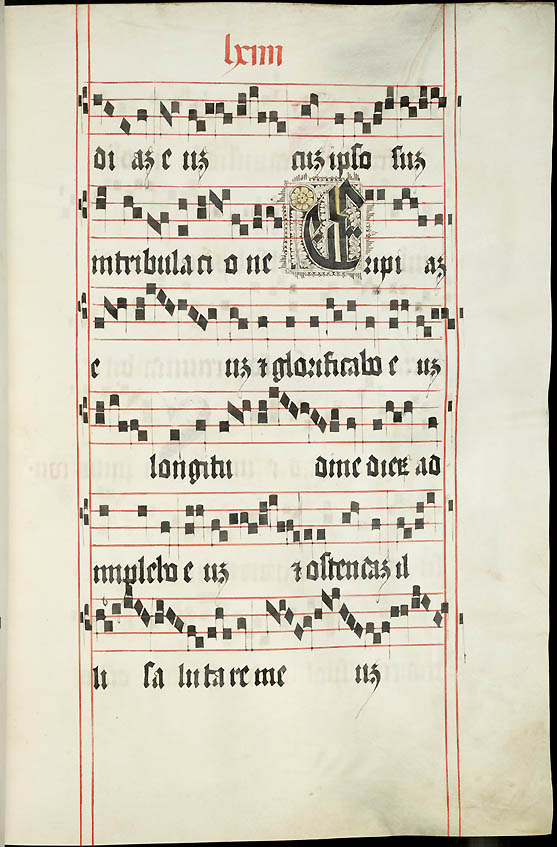 lxiiii
di az e uz cuz ipso suz
in tribulaci o ne Eripi az
e uz ⁊ glorificabo e uz
longitu dine dierz ad
implebo e uz ⁊ ostendaz il
li sa lu ta re me uz